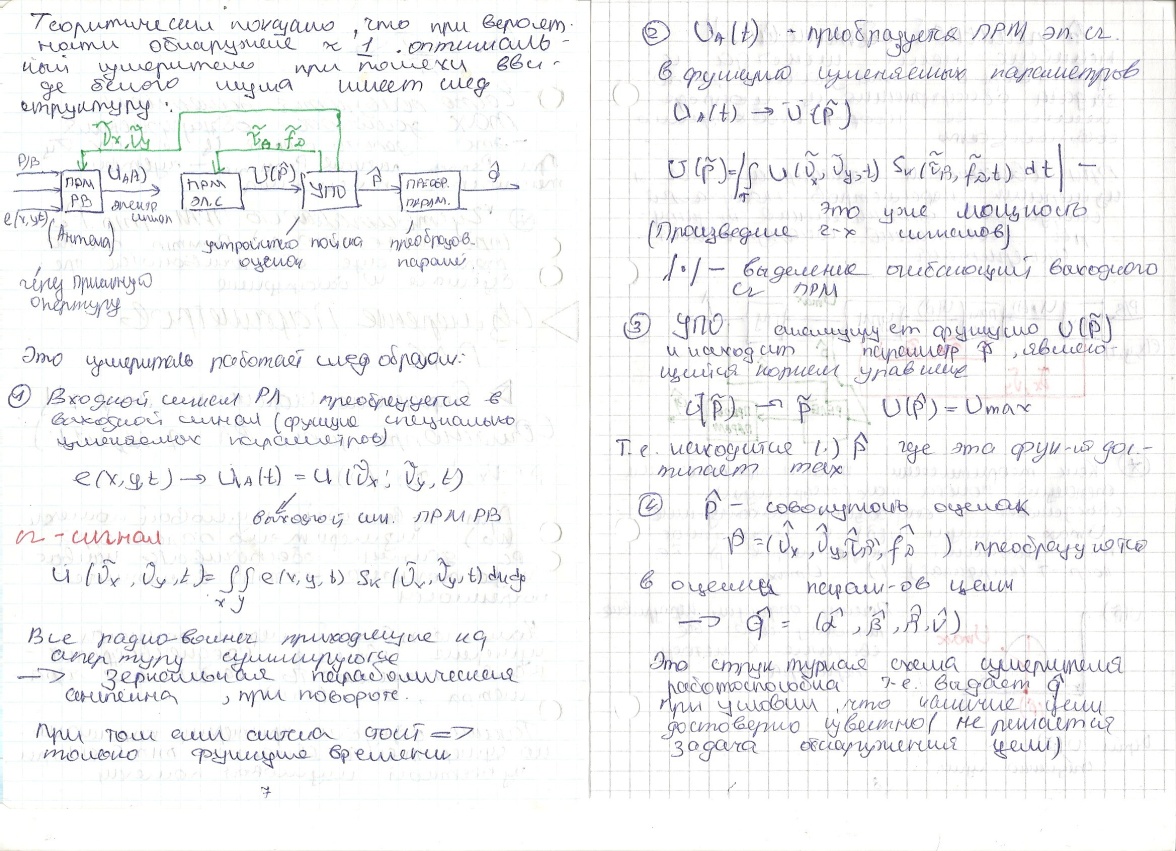 Теоритически показано, что при вероят-
ности обнаружене ≈ 1 оптималь-
ный измеритель при помехи вви-
де белого шума имеет след
структуру:
ν̃x, ν̃y
τ̃A, f̃D
Р/В
ПРМ
РВ
UA(t)
электр
сигнал
ПРМ
ЭЛ.С
U(p̃)
УПО
p̂
ПРЕОБР.
ПАРАМ.
q̂
e(x,y,t)
(Антена)
через приемную
опертуру
устройство поиска
оценок
преобразов.
парамет.
Это измеритель работает след образом:
① Входной сигнал РЛ преобразуется в
выходной сигнал (функцию специально
изменяемых параметров)
e(x,y,t) → UA(t) = U(ν̃x; ν̃y, t)
выходной сиг. ПРМ РВ
сг - сигнал
U(ν̃x, ν̃y, t) = ∫∫ e(x,y,t) Sк(ν̃x, ν̃y, t) dxdy
x y
Все радио-волны приходящие на
апертуру суммируются
→ Зеркальная параболическая
антенна, при повороте.
При том сигнала стоит =>
только функция времени
7
② UA(t) - преобразуется ПРМ эл. сг.
в функцию изменяемых параметров
UA(t) → U(p̃)
U(p̃) = |∫ U(ν̃x, ν̃y, t) Sк(τ̃A, f̃D, t) dt| —
T
это уже мощность
(Произведние 2-х сигналов)
|·| — выделение огибающий выходного
сг ПРМ
③ УПО анализирует функцию U(p̃)
и находит параметр p̂, являю-
щийся корнем уравнение
U(p̃) → p̂ U(p̂) = Umax
Т.е. находится (·) p̂ где эта функ-ия дос-
тигает max
④ p̂ - совокупность оценок
p̂ = (ν̂x, ν̂y, τ̂A, f̂D) преобразуются
в оценки парам-ов цели
→ q̂ = (α̂, β̂, R̂, V̂)
Это структурная схема измерителя
работоспособна т.е. выдает q̂
при условии, что наличие цели
достоверно известно (не решается
задача обнаружения цели)